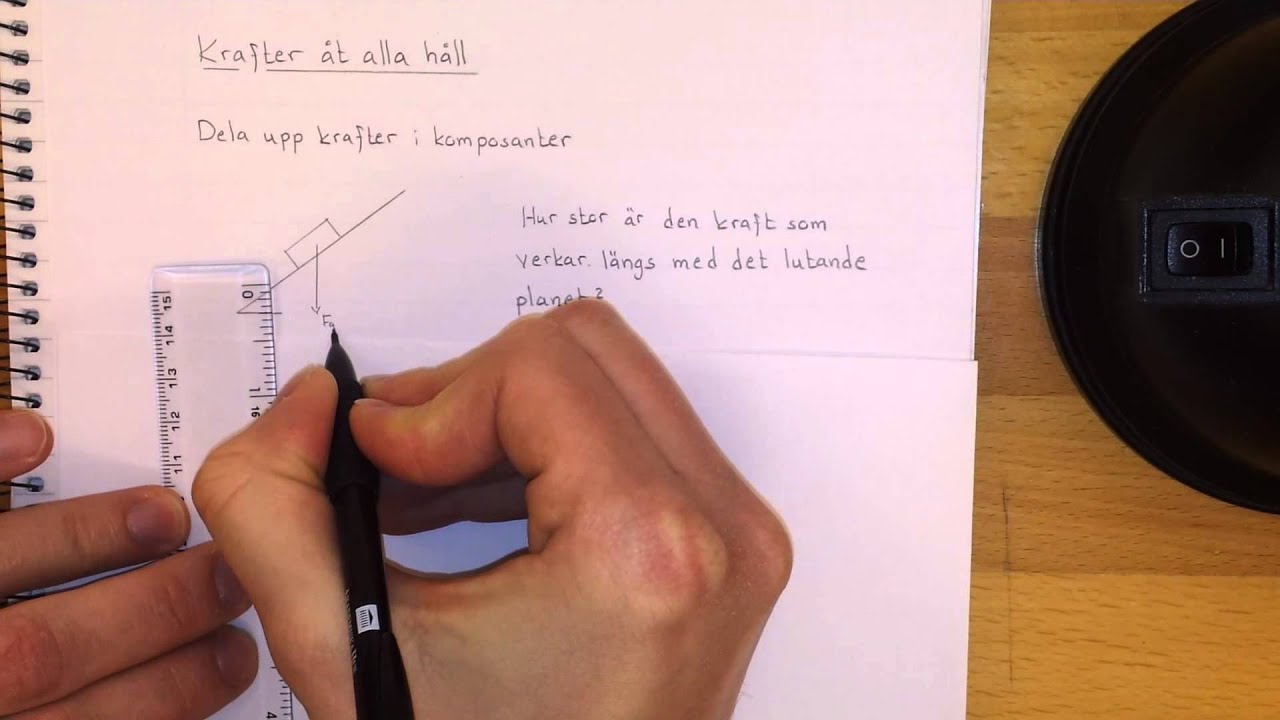 Krafter åt alla håll
Dela upp krafter i komposanter
Hur stor är den kraft som
verkar. längs med det lutande
planet?
Fg
0
15
14
13
12
11
1
16